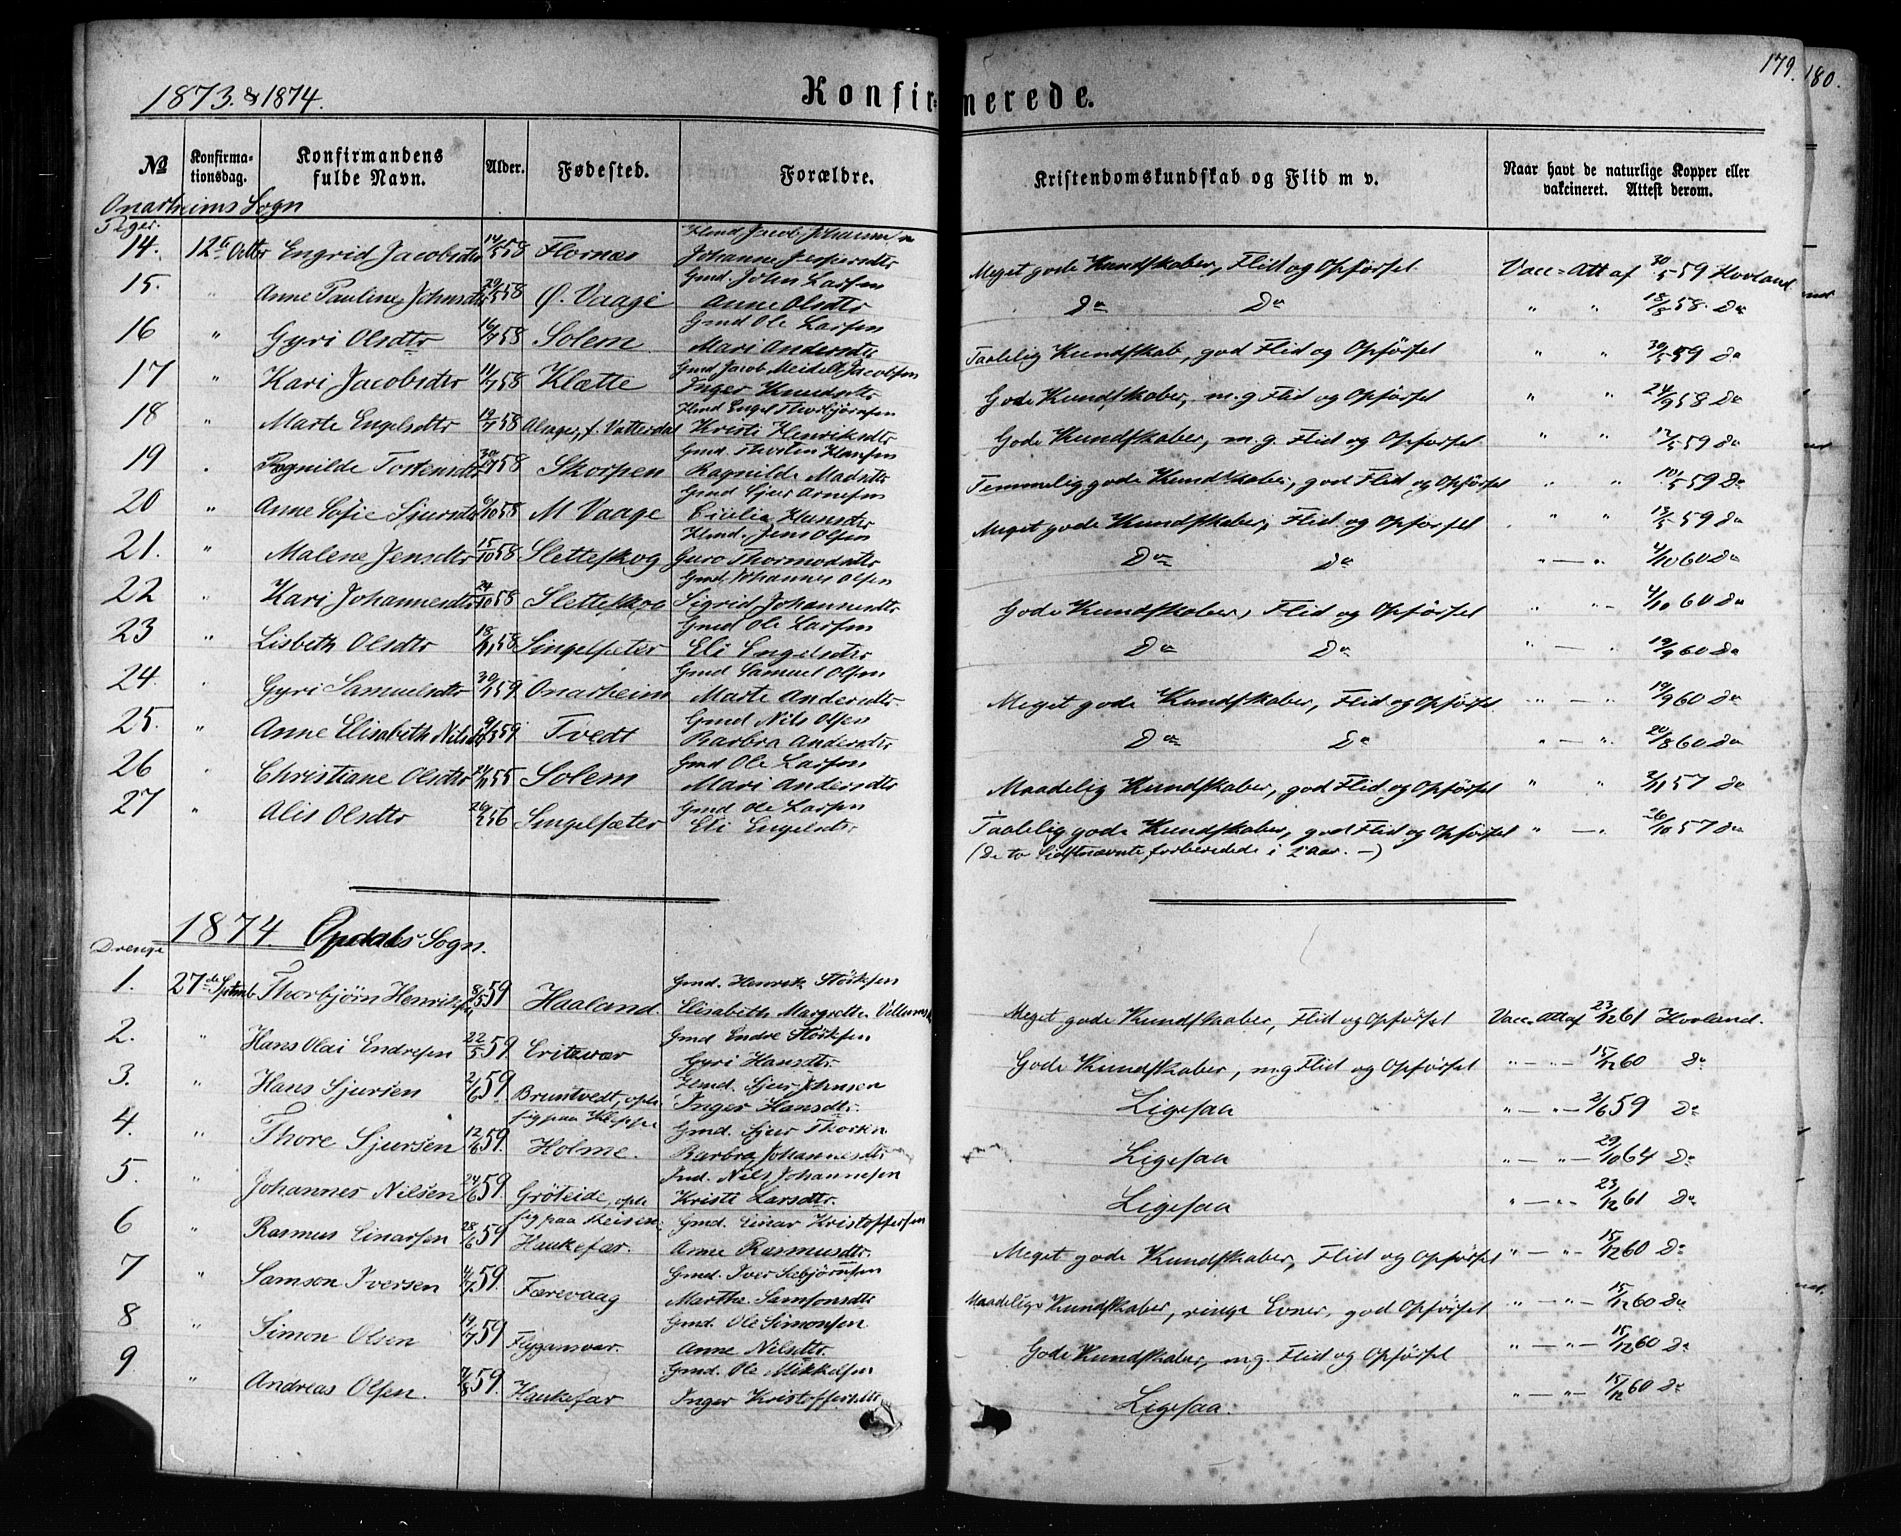 1873. & 1874.
Konfirmerede.
179.
180.
No
Konfirmationsdag.
Konfirmandens fulde Navn.
Alder.
Fødested.
Forældre.
Kristendomskundskab og Flid m v.
Naar havt de naturlige Kopper eller vakcineret. Attest derom.
Onarheims Sogn
Piger.
14. 12te Octbr Engrid Jacobsdtr 58 Flornæs Jacob Johannes Jespersdtr Meget gode Kundskaber, Flid og Opførsel. Vacc. Att af 30/5 59 Hovland
15. " Anne Pauline Johnsdtr 58 Ø. Vaage Gmd. John Larsen Anne Olsdtr Do Do " " 58. Do
16 " Gyri Olsdtr 16/7 58 Solem Gmd Ole Larsen Mari Andersdtr Taalelig Kundskab, god Flid og Opførsel " " 30/5 59 Do
17 " Kari Jacobsdtr 11/7 58 Klætte Gmd Jacob Meidell Jacobsen Inger Knudsdtr Gode Kundskaber, m.g Flid og Opførsel " " 24/9 58 Do
18 " Marte Engelsdtr 19/7 58 Vatterdal Engel Thorbjørnsen Kristi Henriksdtr Gode Kundskaber, m.g. Flid og Opførsel " " 12/5 59 Do
19 " Ragnilde Torstensdtr 58 Skorpen Gmd. Thorsten Hansen Ragnilde Madsdtr Temmelig gode Kundskaber, god Flid og Opførsel " " 10/5 59 Do
20 " Anne Sofie Sjursdtr 6/10 58 M Vaage Gmd Sjur Arnesen Cicilia Hansdtr Meget gode Kundskaber, Flid og Opførsel " " 13/5 59 Do
21. " Malene Jensdtr 15/10 58 Sletteskog Jens Olsen Guro Thormodsdtr Do Do " — " 4/10 60 Do
22 " Kari Johannesdtr 24/10 58 Sletteskog Gmd Johannes Olsen Sigrid Johannesdtr Gode Kundskaber, Flid og Opførsel " " 4/10 60 Do
23 " Lisbeth Olsdtr 18/11 58 Singelsæter Gmd Ole Larsen Eli Engelsdtr Do Do " — " 19/9 60 Do
24. " Gyri Samuelsdtr 59 Onarheim Gmd Samuel Olsen Marte Andersdtr Meget gode Kundskaber, Flid og Opførsel " — " 19/9 60 Do
25. " Anne Elisabeth Nilsdtr 59 Tvedt Gmd Nils Olsen Barbra Andersdtr Do Do " — " 20/8 60 Do
26 " Christiane Olsdtr 55 Solem Gmd Ole Larsen Mari Andersdtr Maadelig Kundskaber, god Flid og Opførsel " " 2/11 57 Do
27 " Alis Olsdtr 56 Singelsæter Gmd Ole Larsen Eli Engelsdtr Taalelig gode Kundskaber, god Flid og Opførsel " — " 26/10 57 Do
(De to Sidstnævnte forberedede i 2 Aar. —)
1874. Opdals Sogn.
Drenge
1. 27de Septemb Thorbjørn Henriksen 8/5 59 Haaland Gmd. Henrik Störksen Elisabeth Margrethe Meget gode Kundskaber, Flid og Opførsel Vacc. Att af 23/12 61 Hovland.
2. " Hans Olai Endresen 22/5 59. Eritzvær Gmd Endre Störksen Gyri Hansdtr. Gode Kundskaber, m.g Flid og Opførsel " — " — 15/12 60 Do
3. " Hans Sjursen 2/6 59. Bruntvedt, Sjur Johnsen Inger Hansdtr. Ligesaa " — " — 2/6 59 Do
4. " Thore Sjursen 12/6 59. Holme. Gmd. Sjur Barbra Johannesdtr Ligesaa " — " — 29/10 64 Do
5. " Johannes Nilsen 24/6 59. Gröteide, Ind. Nils Johannesen Kristi Larsdtr. Ligesaa " — " — 23/12 61 Do
6 " Rasmus Einarsen 28/6 59 Haukefær. Gmd. Einar Kristoffersen Anne Rasmusdtr. Meget gode Kundskaber, Flid og Opførsel " — " — 15/12 60 Do
7 " Samson Iversen 4/7 59. Færevaag Gmd. Iver Marthe Samsonsdtr Maadelige Kundskaber, ringe Evner, god Opførsel " — " — 15/12 60 Do
8 " Simon Olsen 19/7 59 Flygansvær. Gmd. Ole Simonsen Anne Nilsdtr. Gode Kundskaber, m.g. Flid og Opførsel " — " — 15/12 60 Do
9 " Andreas Olsen. 59. Haukefær Gmd. Ole Mikkelsen Inger Kristoffersdtr Ligesaa. " — " — 15/12 60 Do